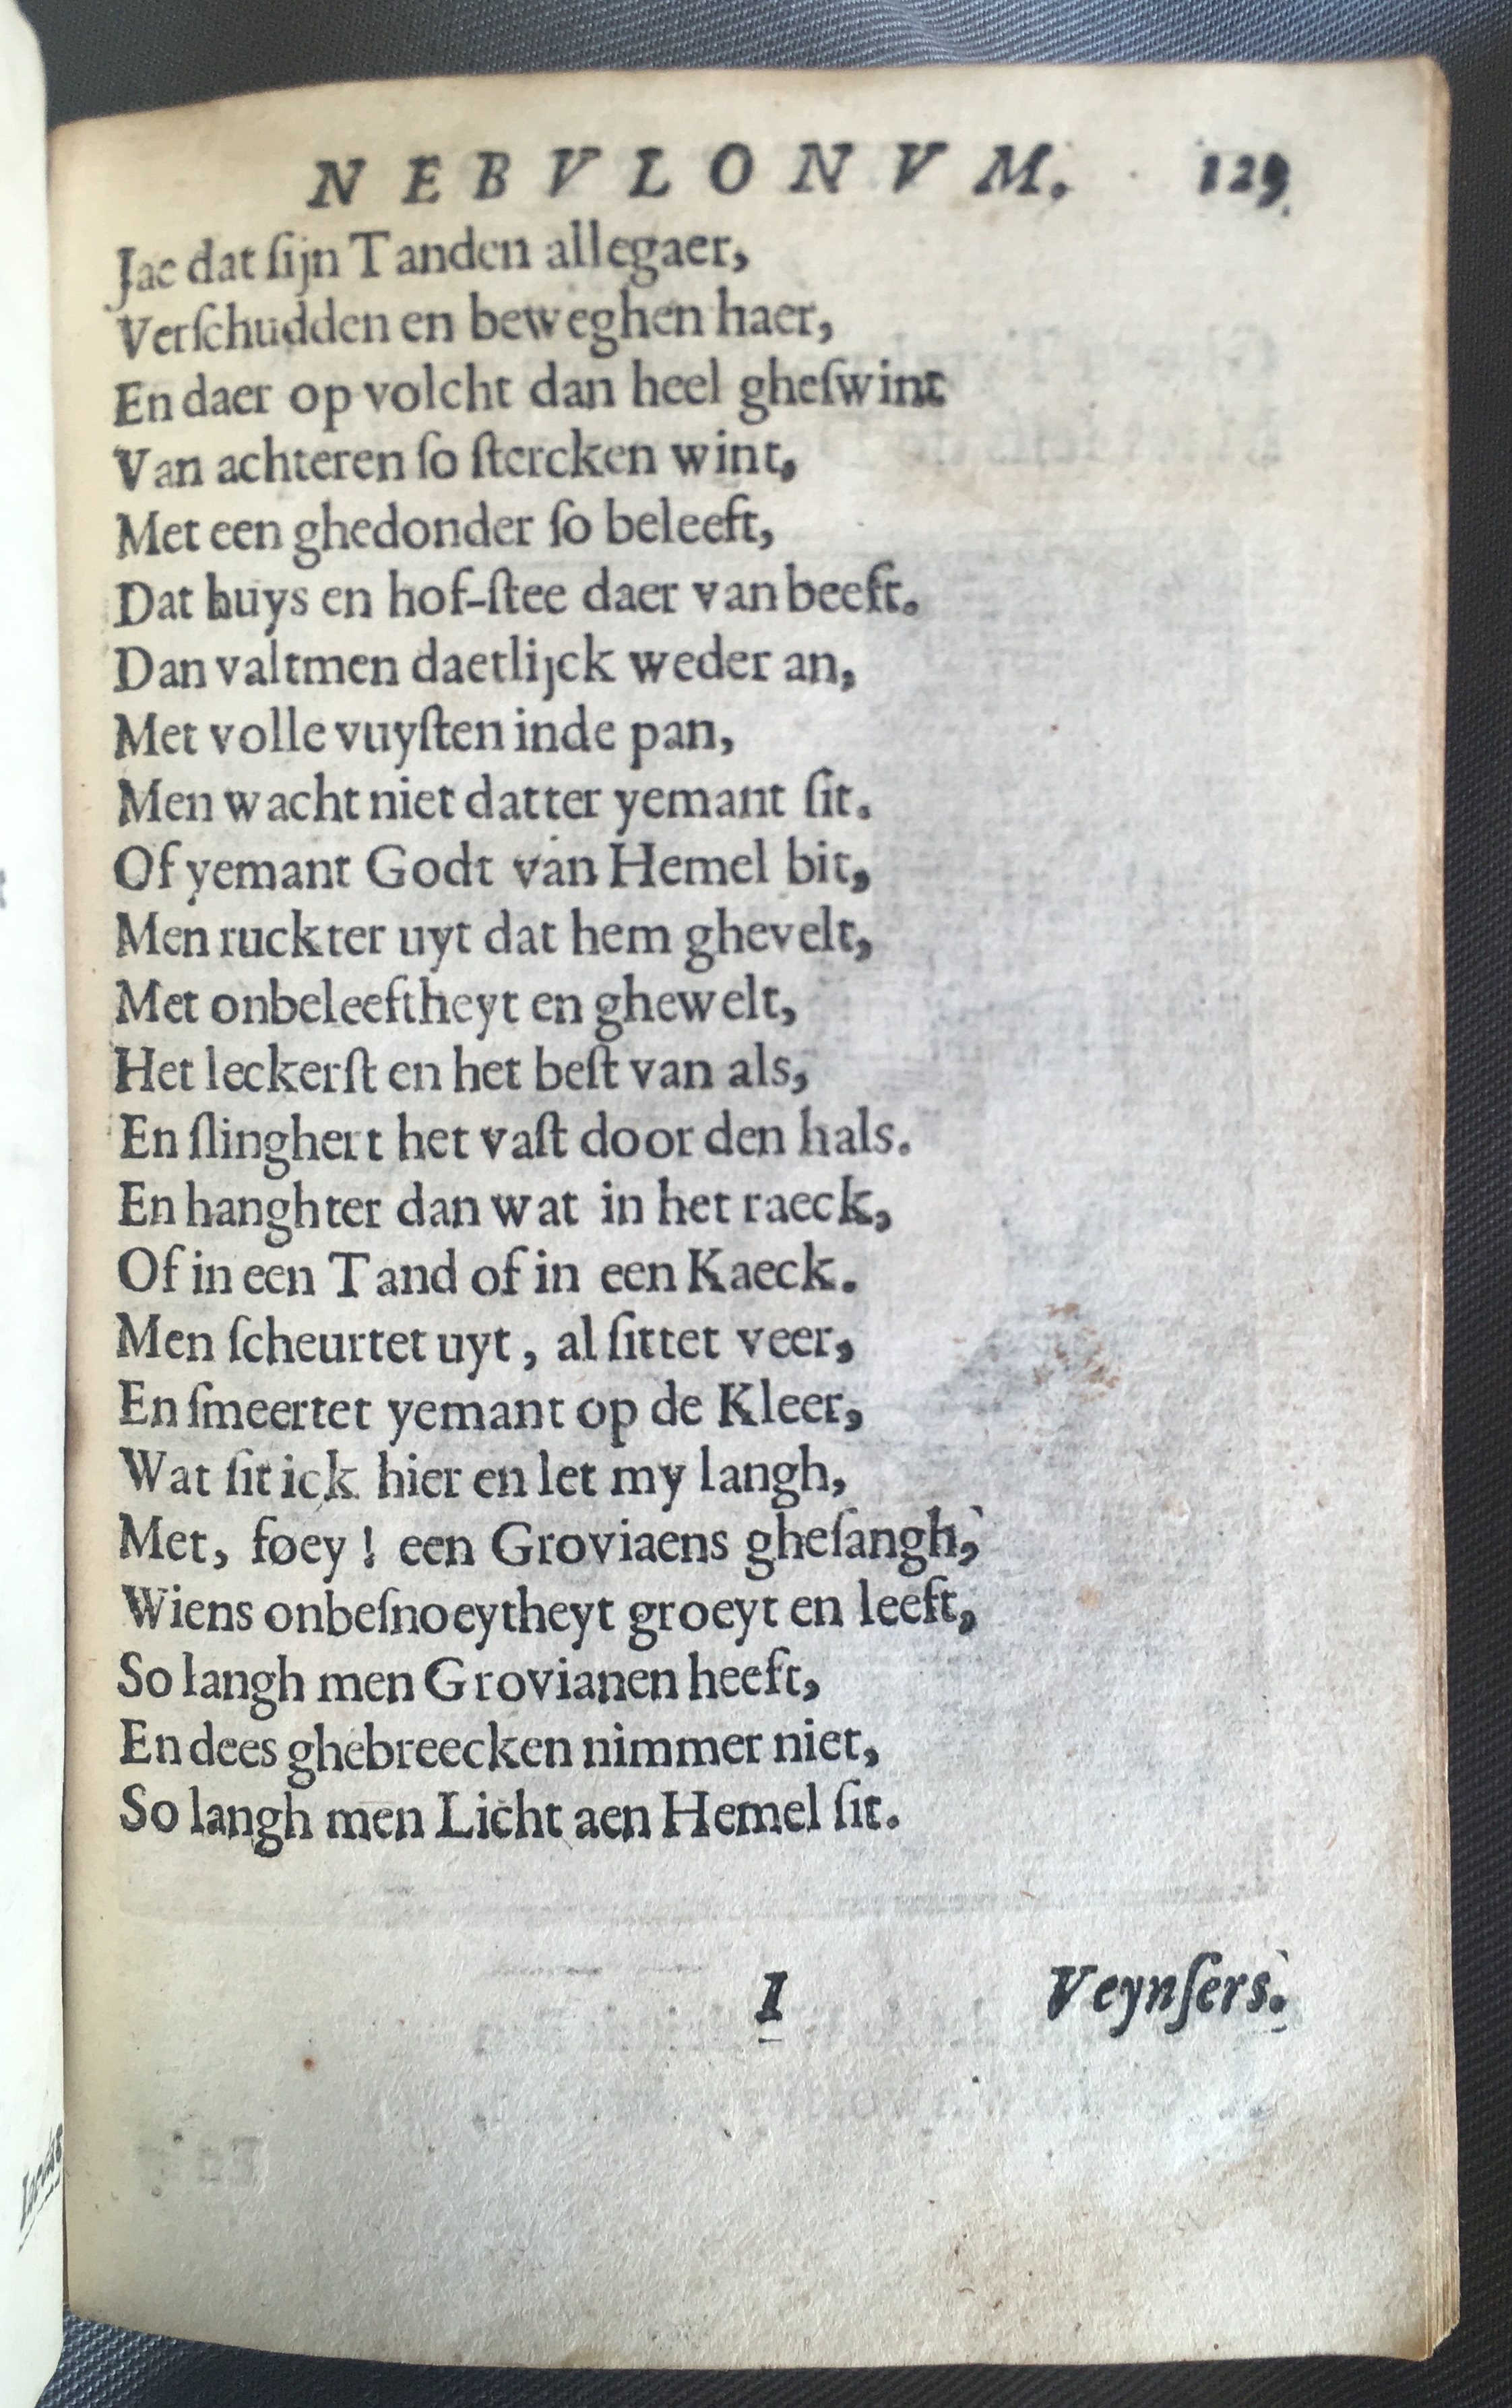 NEBVLONVM. 129
Jae dat ſijn Tanden allegaer,
Verſchudden en beweghen haer,
En daer op volcht dan heel gheſwint
Van achteren ſo ſtercken wint,
Met een ghedonder ſo beleeft,
Dat huys en hof-ſtee daer van beeft.
Dan valtmen daetlijck weder an,
Met volle vuyſten inde pan,
Men wacht niet datter yemant ſit.
Of yemant Godt van Hemel bit,
Men ruckter uyt dat hem ghevelt,
Met onbeleeftheyt en ghewelt,
Het leckerſt en het beſt van als,
En ſlinghert het vaſt door den hals.
En hanghter dan wat in het raeck,
Of in een Tand of in een Kaeck.
Men ſcheurtet uyt, al ſittet veer,
En ſmeertet yemant op de Kleer,
Wat ſit ick hier en let my langh,
Met, foey! een Groviaens gheſangh,
Wiens onbeſnoeytheyt groeyt en leeft,
So langh men Grovianen heeft,
En dees ghebreecken nimmer niet,
So langh men Licht aen Hemel ſit.
I Veynſers.